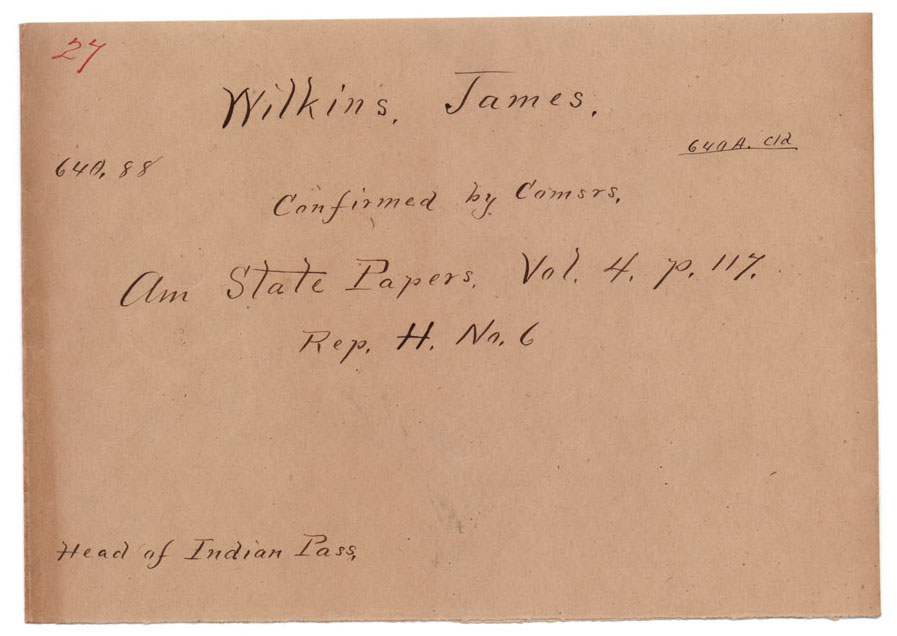 27
Wilkins, James.
640A. cld
640.88
Confirmed by Comsrs.
Am State Papers. Vol. 4. p. 117.
Rep. H. No. 6
Head of Indian Pass.